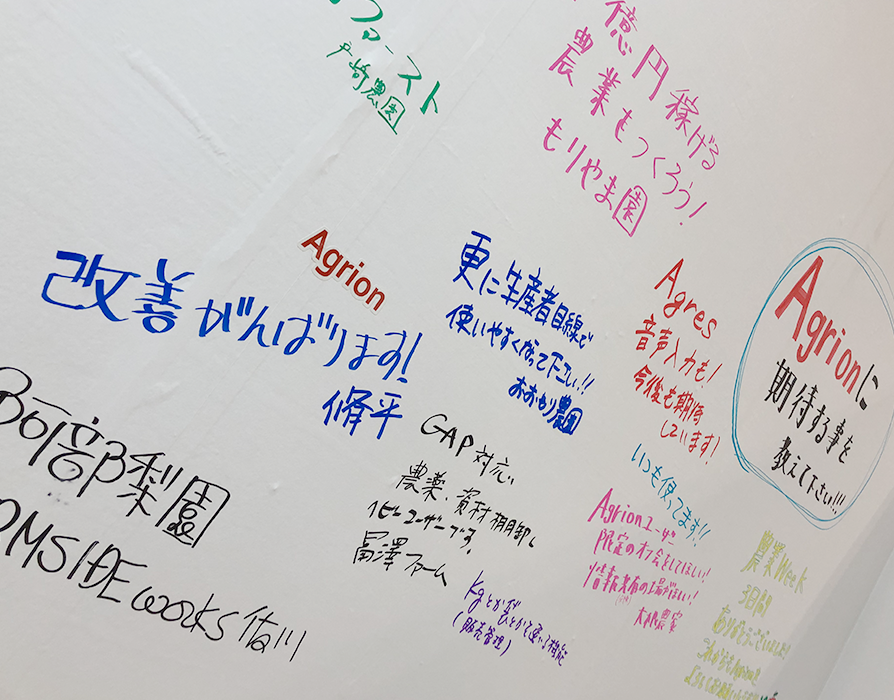 ファースト
戸崎農園
億円稼げる
農業をつくろう!
もりやま園
Agrion
改善がんばります!
修平
更に生産者目線で
使いやすくなって下さい!!
おおもり農園
Agres
音声入力も!
今後も期待
しています!
Agrionに
期待する事を
教えて下さい!!!
阿部梨園
FARMSIDE works 佐川
GAP対応
農薬、資材棚卸し
ヘビーユーザーです。
冨澤ファーム
いつも使ってます!!
Agrionユーザー
限定のオフ会をしてほしい!
情報共有の場がほしい!
大根農家
kgとか
(販売管理)
農業Week
3日間
ありがとうございました!
これからもAgrionを